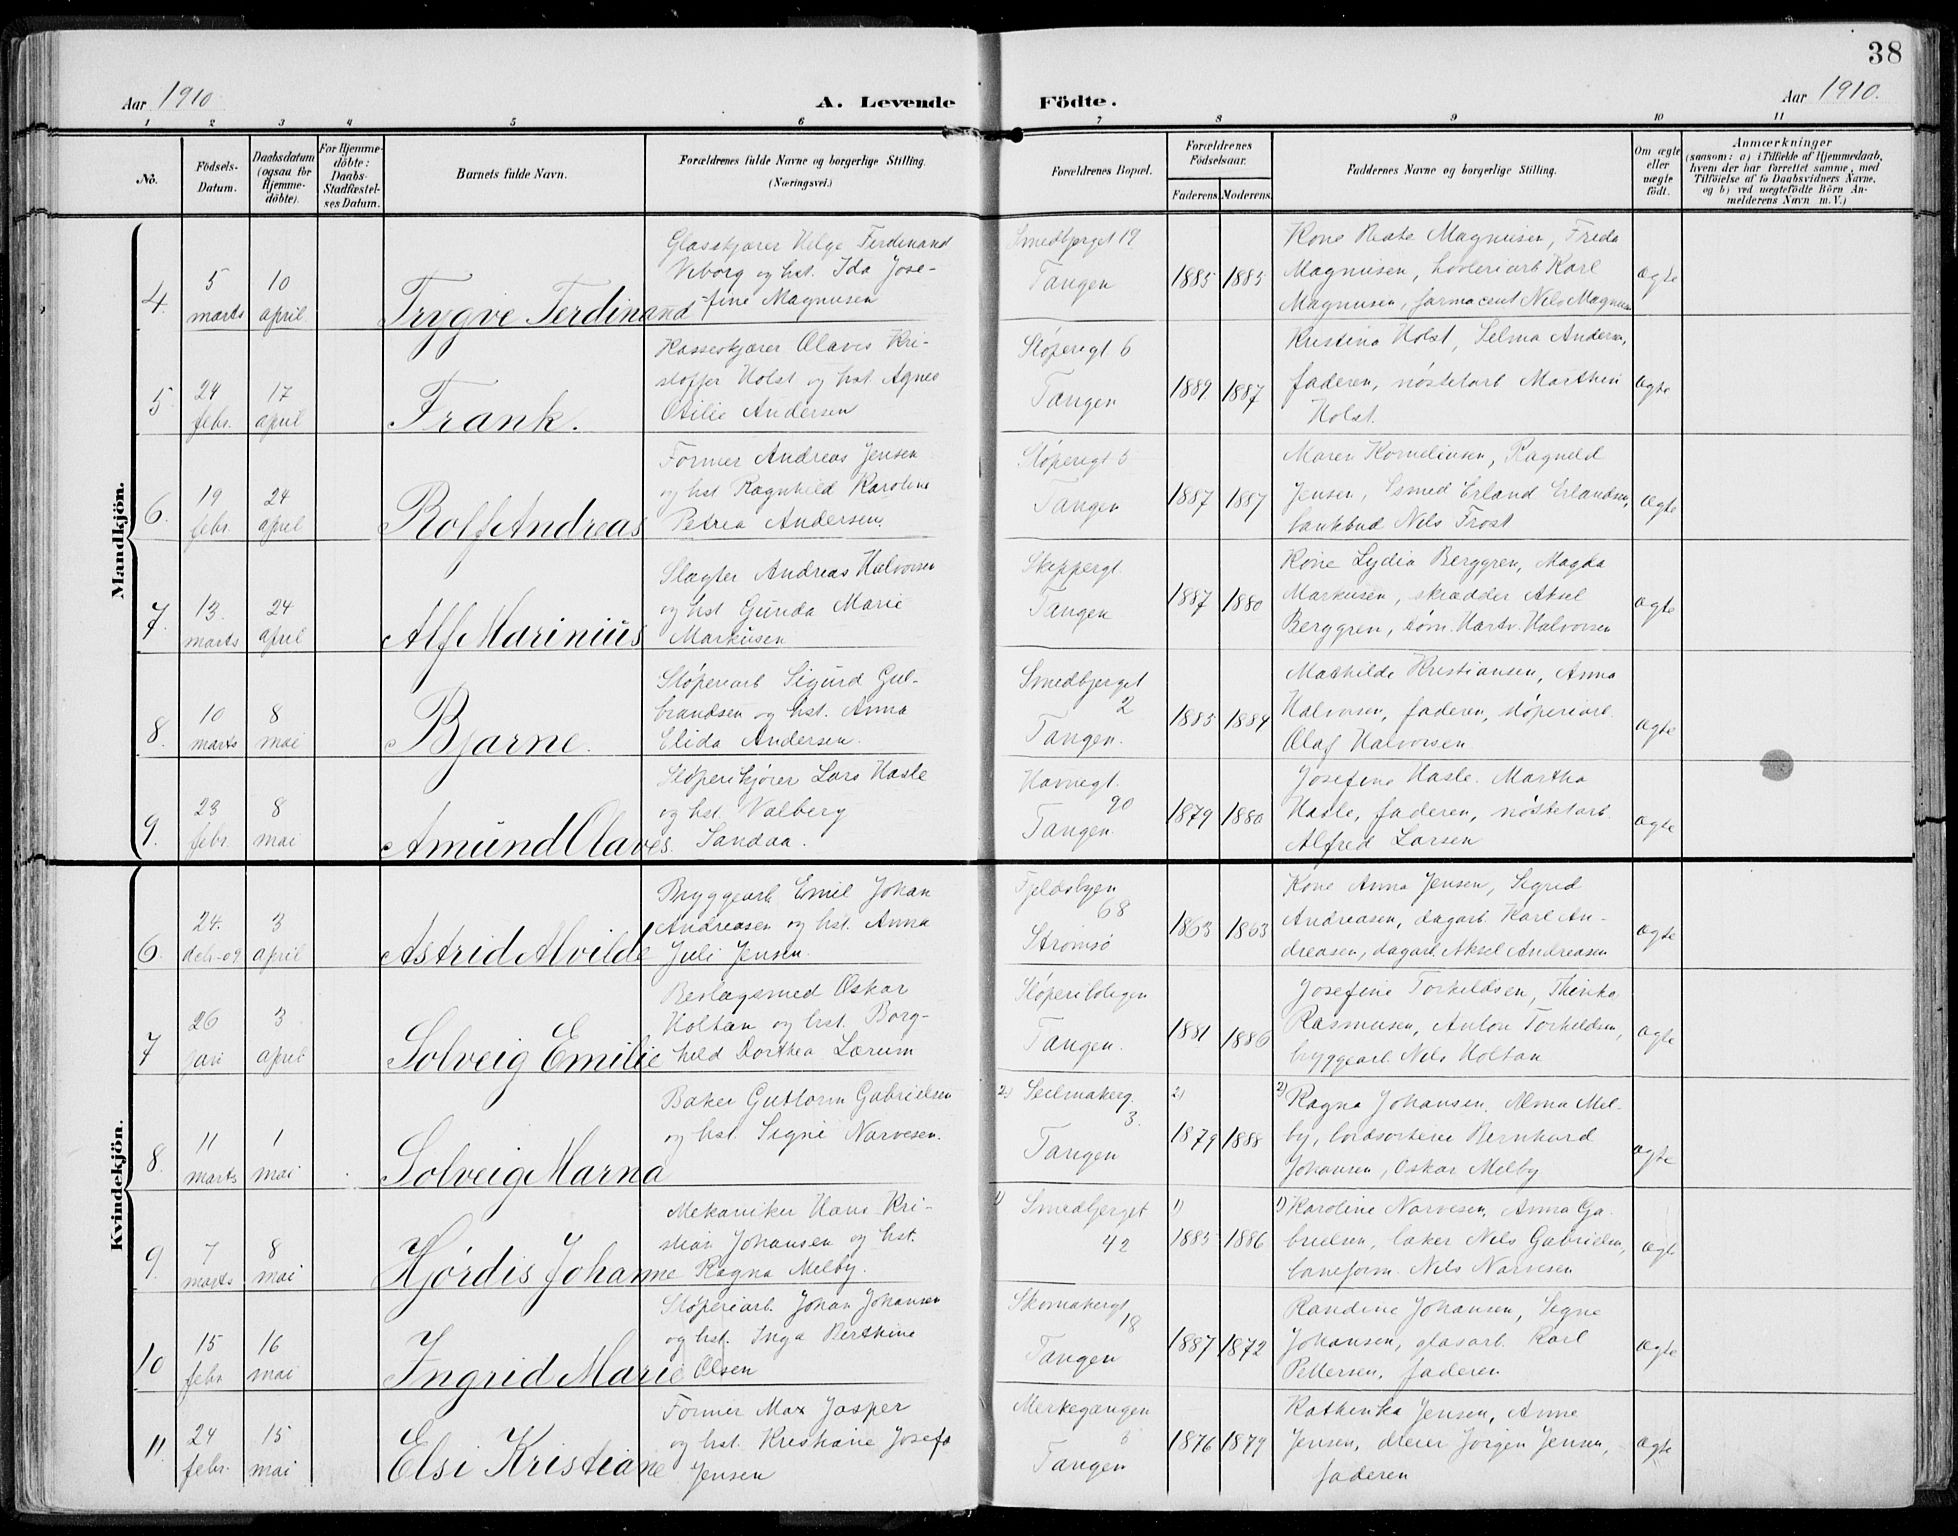 38
Aar 1910.
A. Levende
Födte.
Aar 1910.
1 2 3 4 5 6 7 8 9 10 11
No.
Födsels-
Datum.
Daabsdatum
(ogsaa for
Hjemme-
döbte).
For Hjemme-
döbte:
Daabs-
Stadfæstel-
ses Datum.
Barnets fulde Navn.
Forældrenes fulde Navne og borgerlige Stilling.
(Næringsvei.)
Forældrenes Bopæl.
Forældrenes
Födselsaar.
Faderens.
Moderens.
Faddernes Navne og borgerlige Stilling.
Om ægte
eller
uægte
födt.
Anmærkninger
(saasom: a) i Tilfælde af Hjemmedaab,
hvem der har forrettet samme, med
Tilföielse af to Daabsvidners Navne,
og b) ved uægtefödte Börn An-
melderens Navn m. V.)
Mandkjön.
4. 5 marts 10 april
Trygve Ferdinand
Glasskjærer Helge Ferdinand
Viborg og hst. Ida Jose-
fine Magnusen
Smedbjerget 19
Tangen
1885 1885
Kone Beate Magnusen, Freda
Magnusen, høvleriarb Karl
Magnusen, farmaceut Nils Magnusen
ægte
5. 24 febr. 17 april
Frank.
Olaves Kri-
stoffer Holst og hst Agnes
Otilie Andersen
Støperigt 6
Tangen
1889 1887
Kristina Holst, Selma Andersen,
faderen, Marthin
Holst.
ægte
6. 19 febr. 24 april
Rolf Andreas
Former Andreas Jensen
og hst Ragnhild Karoline
Petrea Andersen.
Støperigt 5
Tangen
1887 1887
Maren Kornelinsen, Ragneld
Jensen, Smed Erland Erlandsen,
bankbud Nils Frost
ægte
7. 13. marts 24 april
Alf Marinius
Slagter Andreas Halvorsen
og hst Gunda Marie
Markusen
Skippergt.
Tangen
1887 1880
Kone Lydia Berggren, Magda
Markusen, skrædder Aksel
Berggren, tøm. Hartv. Halvorsen
ægte
8. 10 marts 8 mai
Bjarne.
Støperiarb Sigurd Gul-
brandsen og hst. Anna
Elida Andersen.
Smedbjerget
2
Tangen.
1885 1884
Mathilde Kristiansen, Anna
Halvorsen, faderen, støperiarb.
Olaf Halvorsen
ægte
9. 23 febr. 8 mai
Amund Olaves.
Støperikjører Lars Hasle
og hst. Valberg
Sandaa.
Havnegt.
90
Tangen.
1879 1880
Josefine Hasle. Martha
Hasle, faderen,
Alfred Larsen
ægte
Kvindekjön.
6. 24. deb-09 3 april
Astrid Alvilde
Bryggearb Emil Johan
Andreasen og hst. Anna
Juli Jensen.
Fjeldsbyen
68
Strømsø
1863 1863
Kone Anna Jensen, Sigrid
Andreasen, dagarb. Karl An-
dreasen, dagarb. Aksel Andreasen
ægte
7 26 jan 3 april
Solveig Emilie
Beslagsmed Oskar
Holtan og hst. Borg-
hild Dorthea Lærum
Støperiboligen
Tangen.
1881 1886
Josefine Torkildsen, Thinka
Rasmusen, Anton Torkildsen,
bryggearb. Nils Holtan
ægte
8. 11 marts 1 mai
Solveig Marna
Baker Guttorm Gabrielsen
og hst. Signe Narvesen.
2) Seilmakerg.
3.
Tangen
2)
1879 1888
2) Ragna Johansen. Alma Mel-
by, bordsorterer Bernhard
Johansen, Oskar Melby
ægte
9. 7 marts 8 mai
Hjørdis Johanne
Mekaniker Hans Kri-
stian Johansen og hst.
Ragna Melby.
1) Smedbjerget
42
1)
1885 1886
1) Karoline Narvesen, Anna Ga-
brielsen, baker Nils Gabrielsen,
baneform. Nils Narvesen
ægte
10 15 febr 16 mai
Ingrid Marie
Støperiarb. Johan Johansen
og hst. Inga Berthine
Olsen
Skomakergt
18
Tangen
1887 1872
Randine Johansen, Signe
Johansen, glasarb. Karl
Pettersen, faderen
ægte
11. 24 febr. 15 mai
Elsi Kristiane
Former Max Jasper
og hst. Kristiane Josefa
Jensen
Merkegangen
Tangen
1876 1879
Kathinka Jensen, Anne
Jensen, dreier Jørgen Jensen,
faderen
ægte